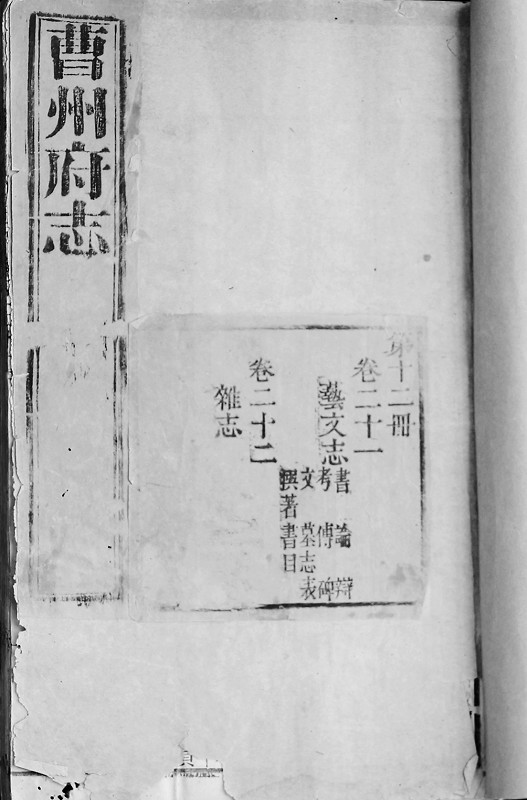 曹州府志
第十二冊
卷二十一
藝文志
書 論 辯
考 傅 碑
文 墓志表
撰著書目
卷二十二
雜志